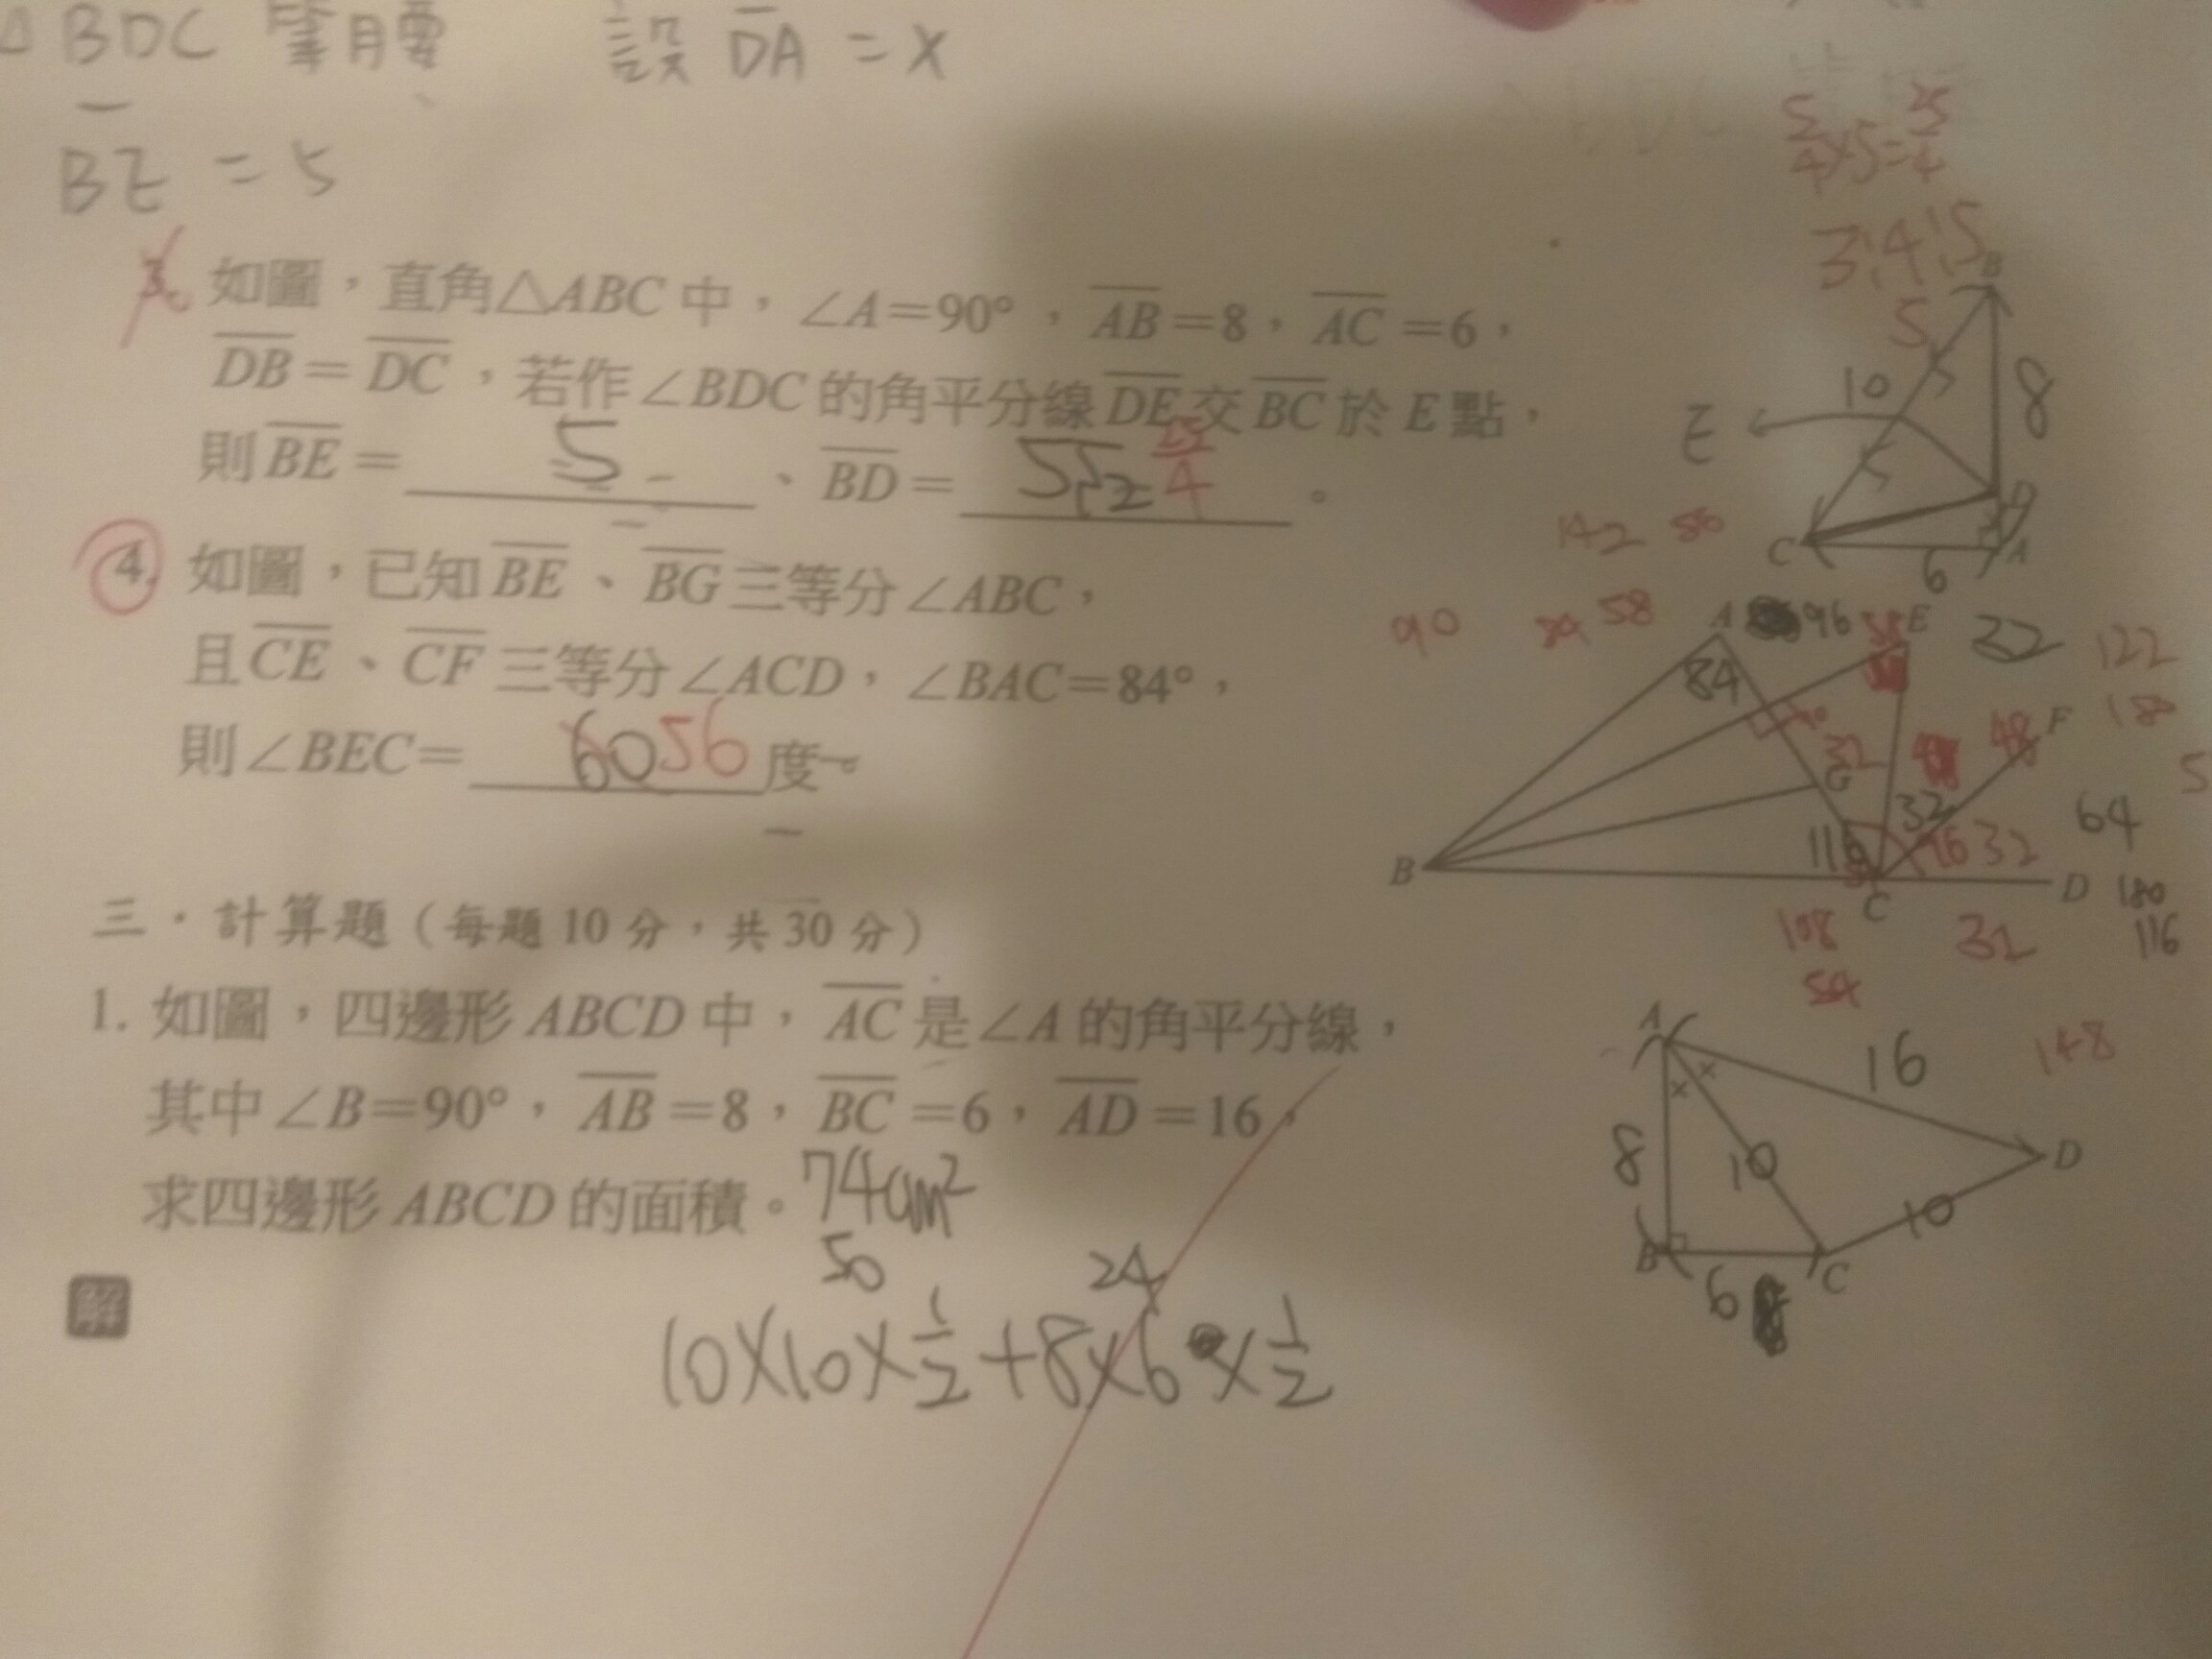 △BDC 等腰 設 DA = x
BE = 5
3. 如圖，直角△ABC 中，∠A=90°，AB=8，AC=6，
DB=DC，若作∠BDC 的角平分線 DE 交 BC 於 E 點，
則 BE= 5 、BD= 25/4 。
4. 如圖，已知 BE、BG 三等分∠ABC，
且 CE、CF 三等分∠ACD，∠BAC=84°，
則∠BEC= 60 56 度。
三．計算題（每題 10 分，共 30 分）
1. 如圖，四邊形 ABCD 中，AC 是∠A 的角平分線，
其中∠B=90°，AB=8，BC=6，AD=16，
求四邊形 ABCD 的面積。74cm²
50 24
解
10×10×1/2+8×6×1/2
5/4×5=25/4
3:4:5
B
5
10
8
E
D
C
6
A
142
90 58
A 96 E 32 122
84
F 18
G
32 64
116 32
B C D 180
108 32 116
54
A 16 148
8 10 D
10
B 6 C